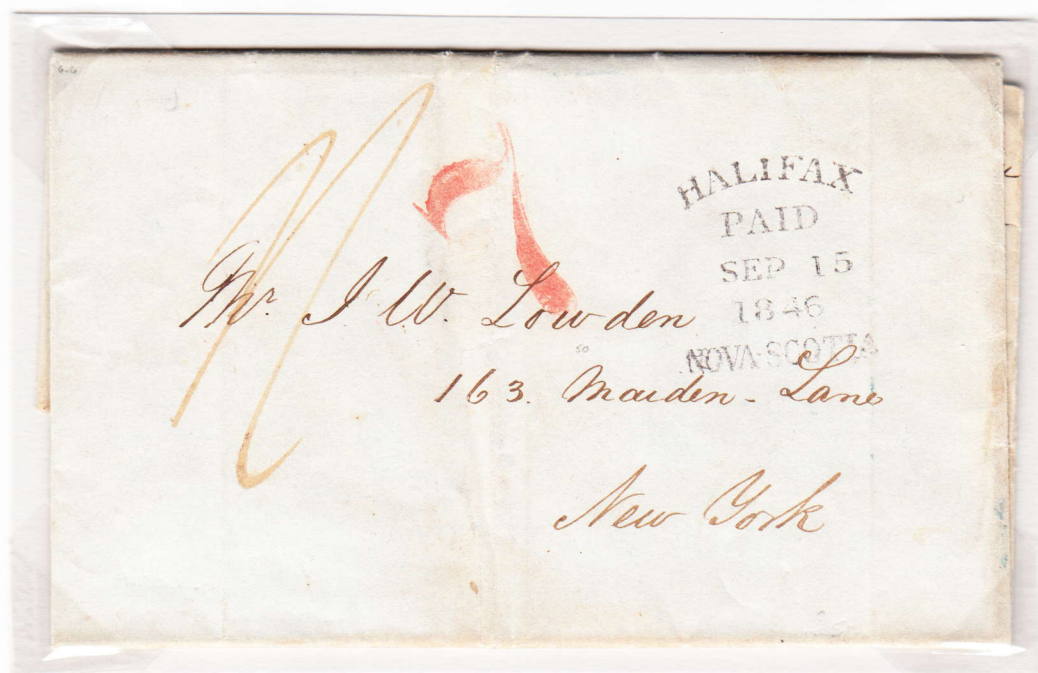 HALIFAX
PAID
SEP 15
1846
NOVA·SCOTIA
Mr. J. W. Lowden
50
163. Maiden-Lane
New York